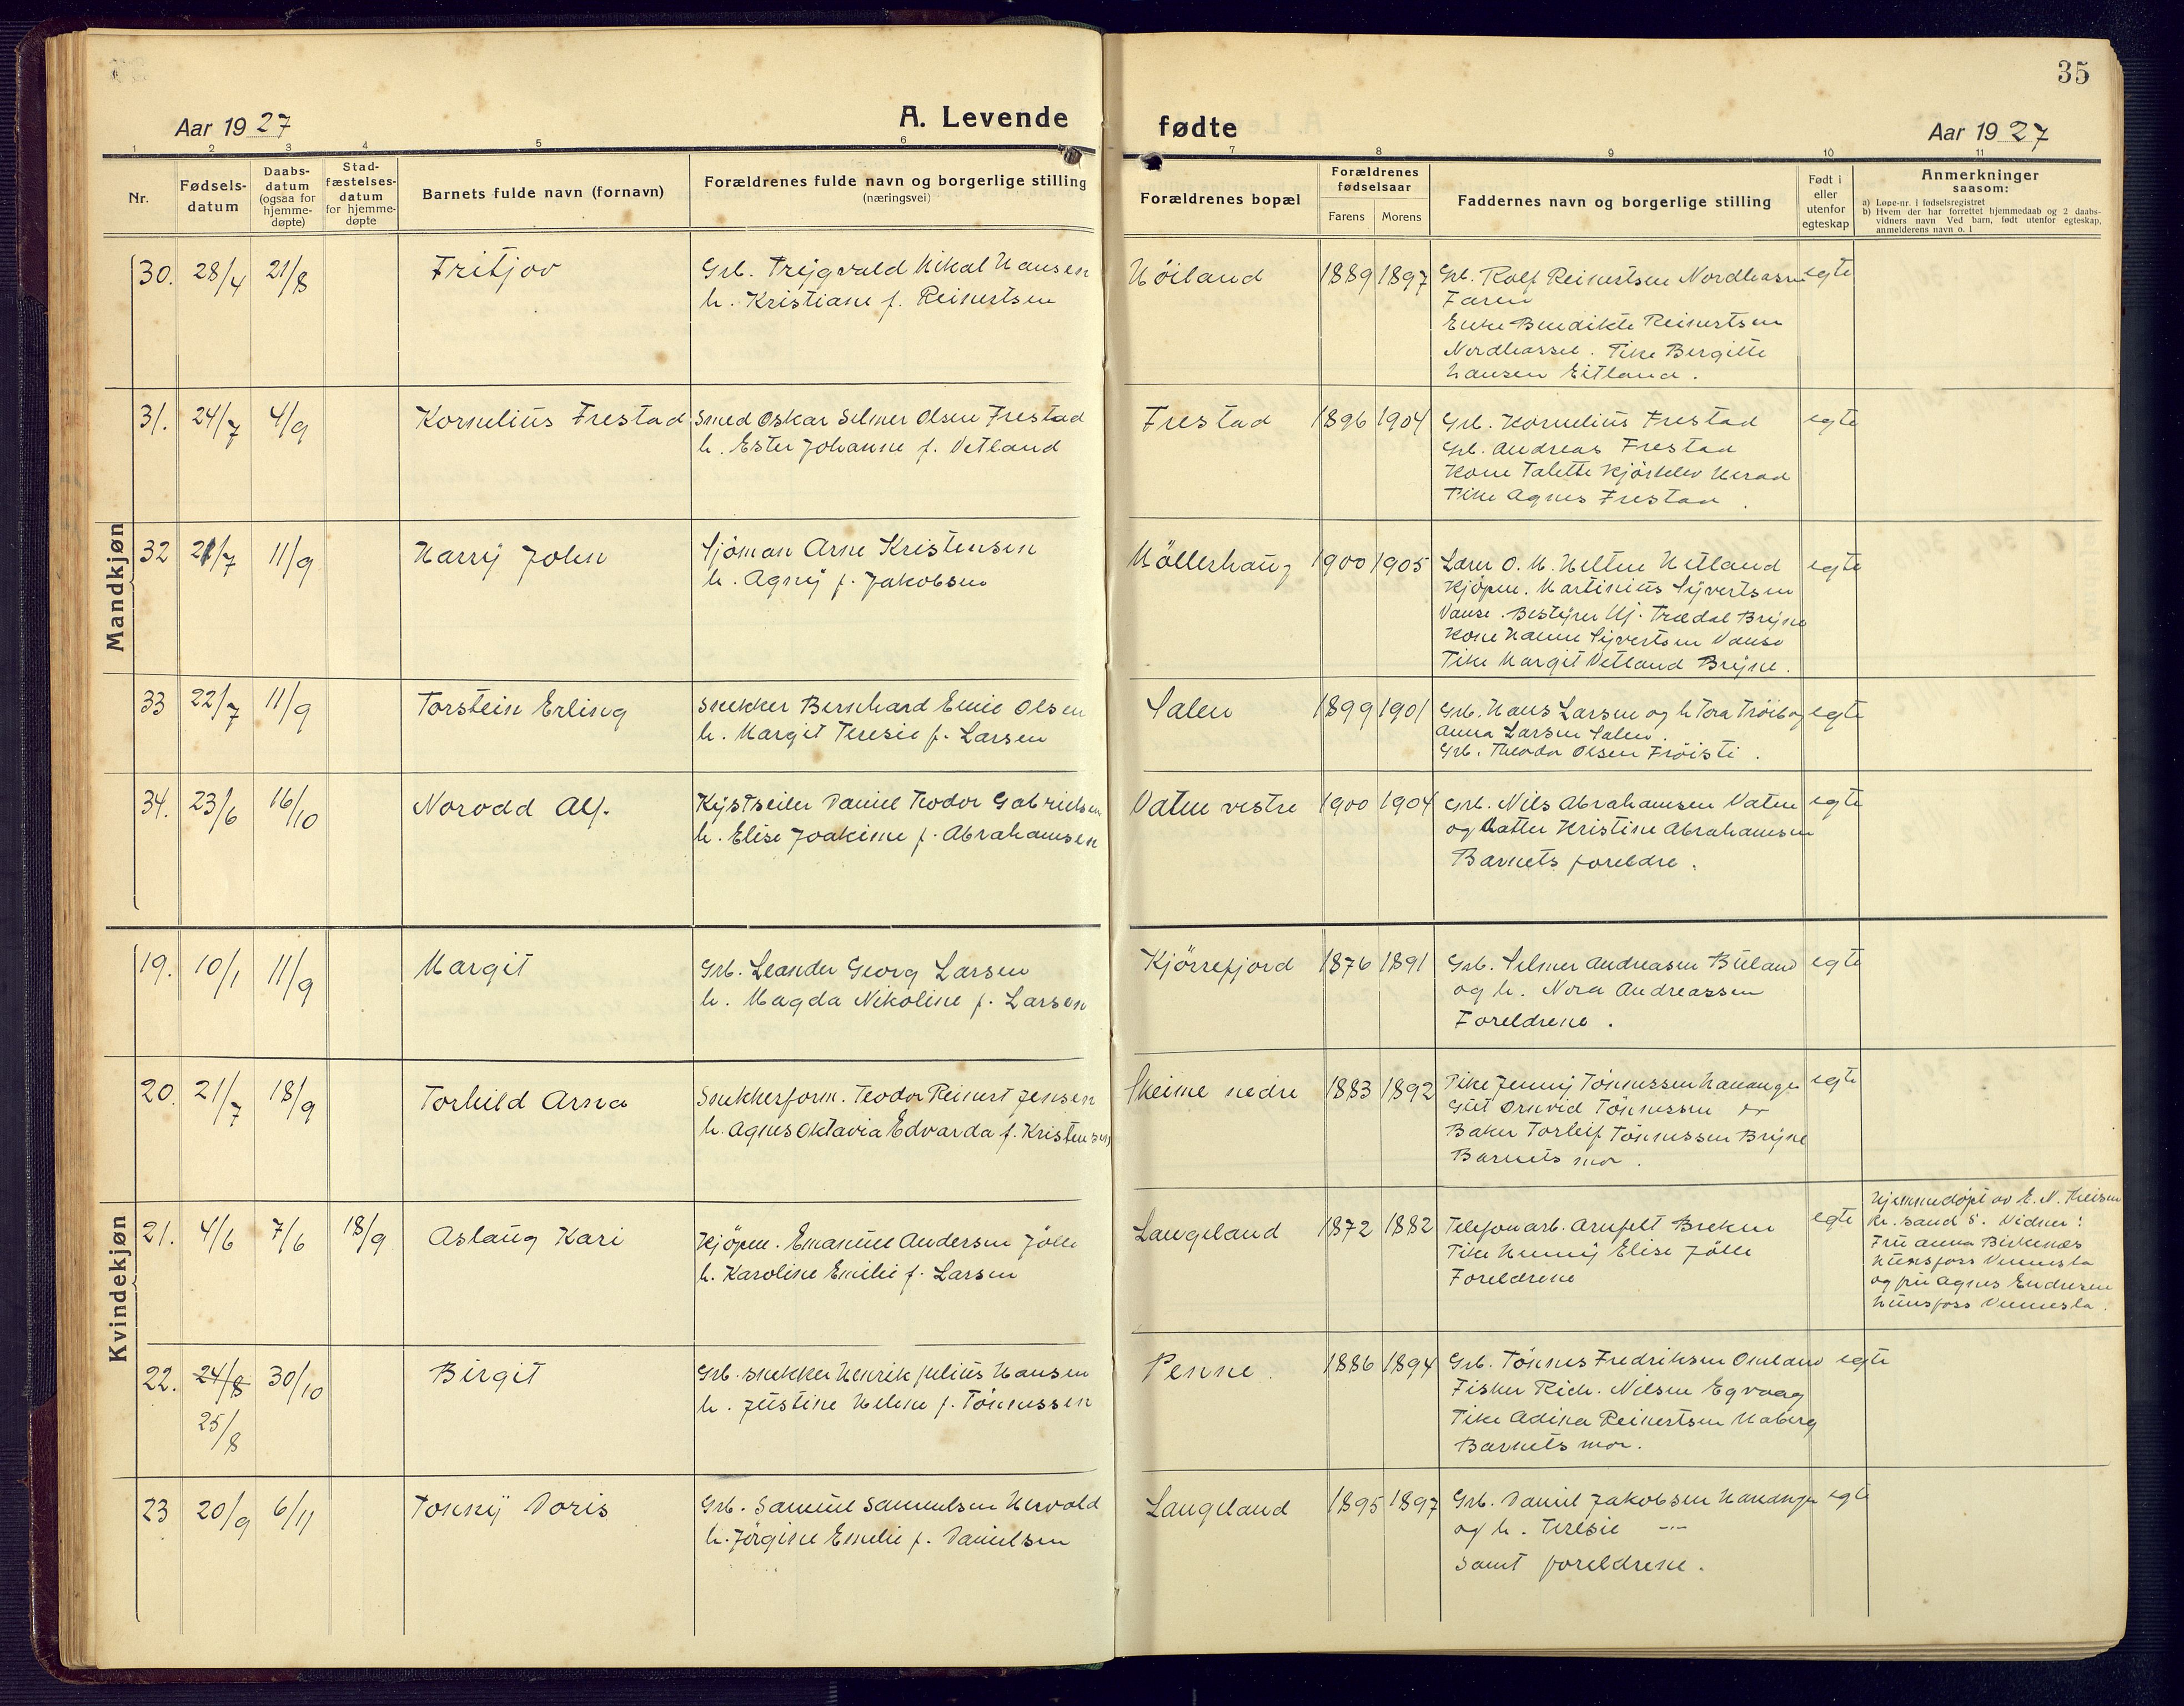 35
Aar 1927
A. Levende fødte
Aar 1927
1 2 3 4 5 6 7 8 9 10 11
Nr.
Fødsels-
datum
Daabs-
datum
(ogsaa for
hjemme-
døpte)
Stad-
fæstelses-
datum
for hjemme-
døpte
Barnets fulde navn (fornavn)
Forældrenes fulde navn og borgerlige stilling
(næringsvei)
Forældrenes bopæl
Forældrenes
fødselsaar
Farens Morens
Faddernes navn og borgerlige stilling
Født i
eller
utenfor
egteskap
Anmerkninger
saasom:
a) Løpe-nr. i fødselsregistret
b) Hvem der har forrettet hjemmedaab og 2 daabs-
vidners navn Ved barn, født utenfor egteskap,
anmelderens navn o. l
Mandkjøn
30. 28/4 21/8 Fritjov
Grb. Trygvald Mikal Hansen
h. Kristiane f. Reinertsen
Höiland 1889 1897
Grb. Rolf Reinertsen Nordhassel egte
Faren
Enke Bendikte Reinertsen
Nordhassel. Pike Bergitte
Hansen Eitland.
31. 24/7 4/9 Kornelius Frestad
Smed Oskar Selmer Olsen Frestad
h. Ester Johanne f. Vetland
Frestad 1896 1904
Grb. Kornelius Frestad egte
Grb. Andreas Frestad
Kone Talette Herad
Pike Agnes Frestad
32 21/7 11/9 Harry John
Sjöman Arne Kristensen
h. Agny f. Jakobsen
Möllerhaug 1900 1905
Lærer O. M. Hetland egte
Kjöpm. Martinius Syvertsen
Vanse. Bestyrer Trædal Bryne
Kone Hanne Syvertsen Vanse
Pike Margit Vetland Bryne.
33 22/7 11/9 Torstein Erling
Snekker Bernhard Emil Olsen
h. Margit Teresie f. Larsen
Salen 1899 1901
Grb. Hans Larsen og h. Tora egte
Anna Larsen Salen.
Grb. Theodor Olsen Fröisti.
34. 23/6 16/10 Norodd Alf.
Kystseiler Daniel Teodor Gabrielsen
h. Elise Joakime f. Abrahamsen
Vatne vestre 1900 1904
Grb. Nils Abrahamsen Vatne egte
og datter Kristine Abrahamsen
Barnets foreldre.
Kvindekjøn
19. 10/1 11/9 Margit
Grb. Leander Georg Larsen
h. Magda Nikoline f. Larsen
Kjörrefjord 1876 1891
Grb. Selmer Andreasen Büland egte
og h. Nora Andreassen
Foreldrene.
20. 21/7 18/9 Torhild Arna
Snekkerform. Teodor Reinert Jensen
h. Agnes Oktavia Edvarda f. Kristensen
Skeime nedre 1883 1892
Pike Jenny Tönnessen Hananger egte
Gut Ornvid Tönnessen
Baker Torleif Tönnessen Bryne
Barnets mor.
21. 4/6 7/6 18/9 Aslaug Kari
Kjöpm. Emanuel Andersen Jölle
h. Karoline Emilie f. Larsen
Langeland 1872 1882
Telefonarb. Arnfelt Brekne egte
Pike Henny Elise Jölle
Foreldrene
Hjemmedöpt av E. N.
Kr. sand S. Vidner:
Fru Anna Birkenes
Hunsfoss Vennesla
og fru Agnes Endresen
Hunsfoss Vennesla.
22. 24/8 30/10 Birgit
25/8
Grb. snekker Henrik Julius Hansen
h. Justine Helene f. Tönnessen
Penne. 1886 1894
Grb. Tönnes Fredriksen Omland egte
Fisker Rich. Nilsen Egvaag
Pike Adina Reinertsen Haberg
Barnets mor.
23 20/9 6/11 Tonny Doris
Grb. Samuel Samuelsen Hervold
h. Jörgine Emelie f. Danielsen
Langeland 1895 1897
Grb. Daniel Jakobsen Hananger egte
og h. Teresie —"—
samt foreldrene.